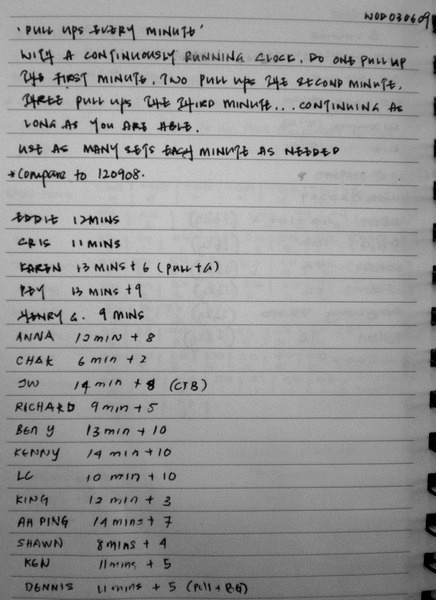 WOD030609
'PULL UPS EVERY MINUTE'
WITH A CONTINUOUSLY RUNNING CLOCK. DO ONE PULL UP
THE FIRST MINUTE, TWO PULL UPS THE SECOND MINUTE,
THREE PULL UPS THE THIRD MINUTE... CONTINUING AS
LONG AS YOU ARE ABLE.
USE AS MANY SETS EACH MINUTE AS NEEDED
*Compare to 120908.
EDDIE 12 MINS
CRIS 11 MINS
KAREN 13 MINS + 6 (PULL + G)
13 MINS + 9
HENRY G. 9 MINS
ANNA 12 min + 8
CHAK 6 min + 2
JW 14 min + 8 (CTB)
RICHARD 9 min + 5
BEN Y 13 min + 10
KENNY 14 min + 10
LC 10 min + 10
KING 12 min + 3
AH PING 14 mins + 7
SHAWN 8 mins + 4
KEN 11 mins + 5
DENNIS 11 mins + 5 (Pull + BG)